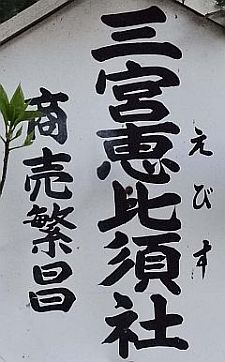 三宮恵比須社
えびす
商売繁昌